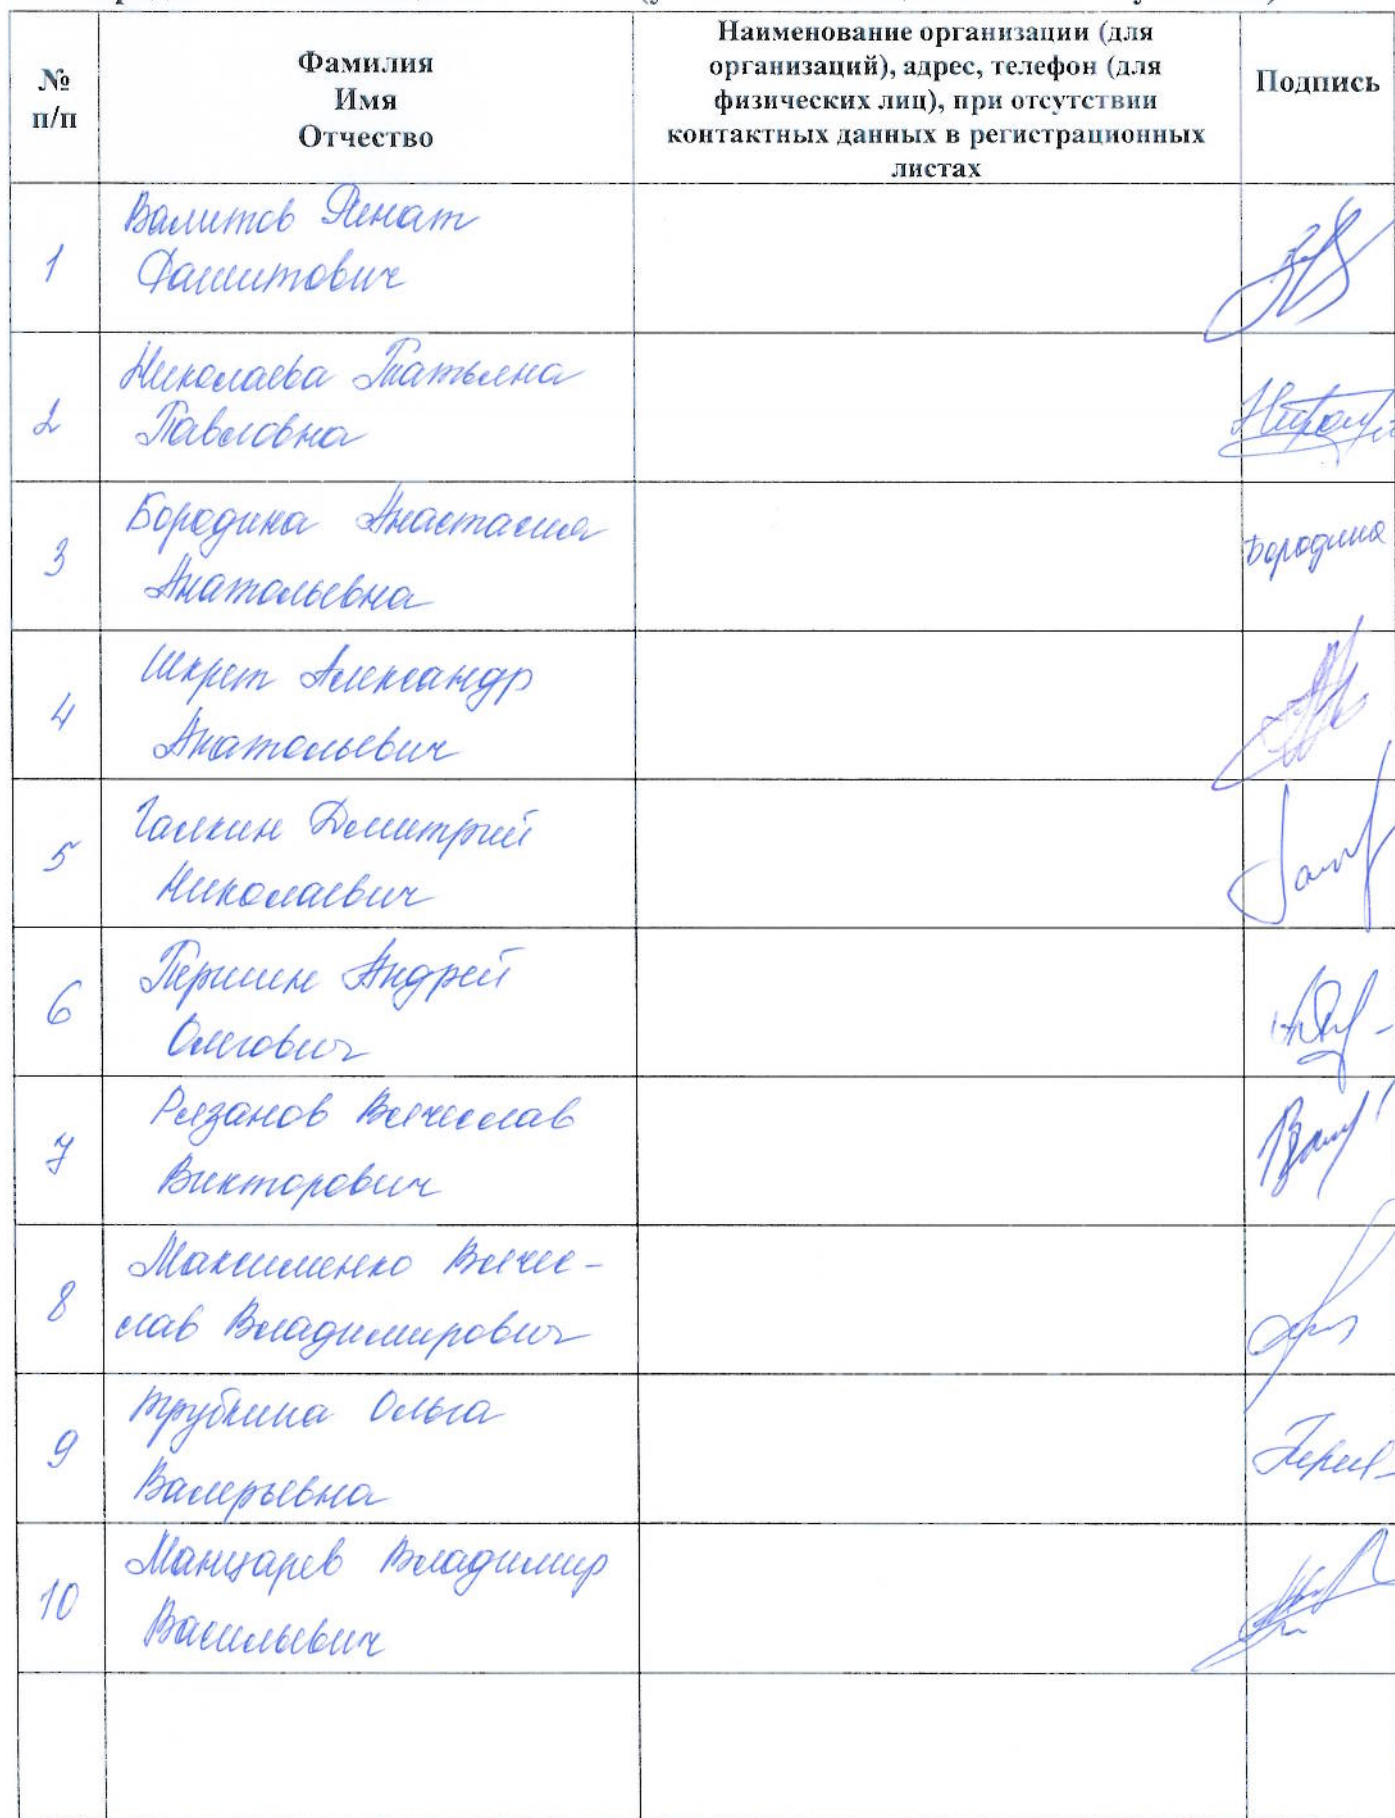 №
п/п
Фамилия
Имя
Отчество
Наименование организации (для
организаций), адрес, телефон (для
физических лиц), при отсутствии
контактных данных в регистрационных
листах
Подпись
1
Валитов Ренат
Рашитович
2
Николаева Татьяна
Павловна
3
Бородина Анастасия
Анатольевна
Бородина
4
Шкрет Александр
Анатольевич
5
Галкин Дмитрий
Николаевич
6
Першин Андрей
Олегович
7
Рязанов Вячеслав
Викторович
8
Максименко Вячес-
лав Владимирович
9
Трубкина Ольга
Валерьевна
10
Манцарев Владимир
Васильевич